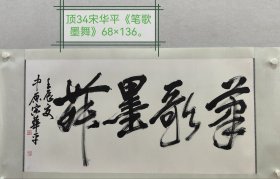 顶34宋华平《笔歌
墨舞》68×136。
筆歌墨舞
壬辰夏
中原宋華平